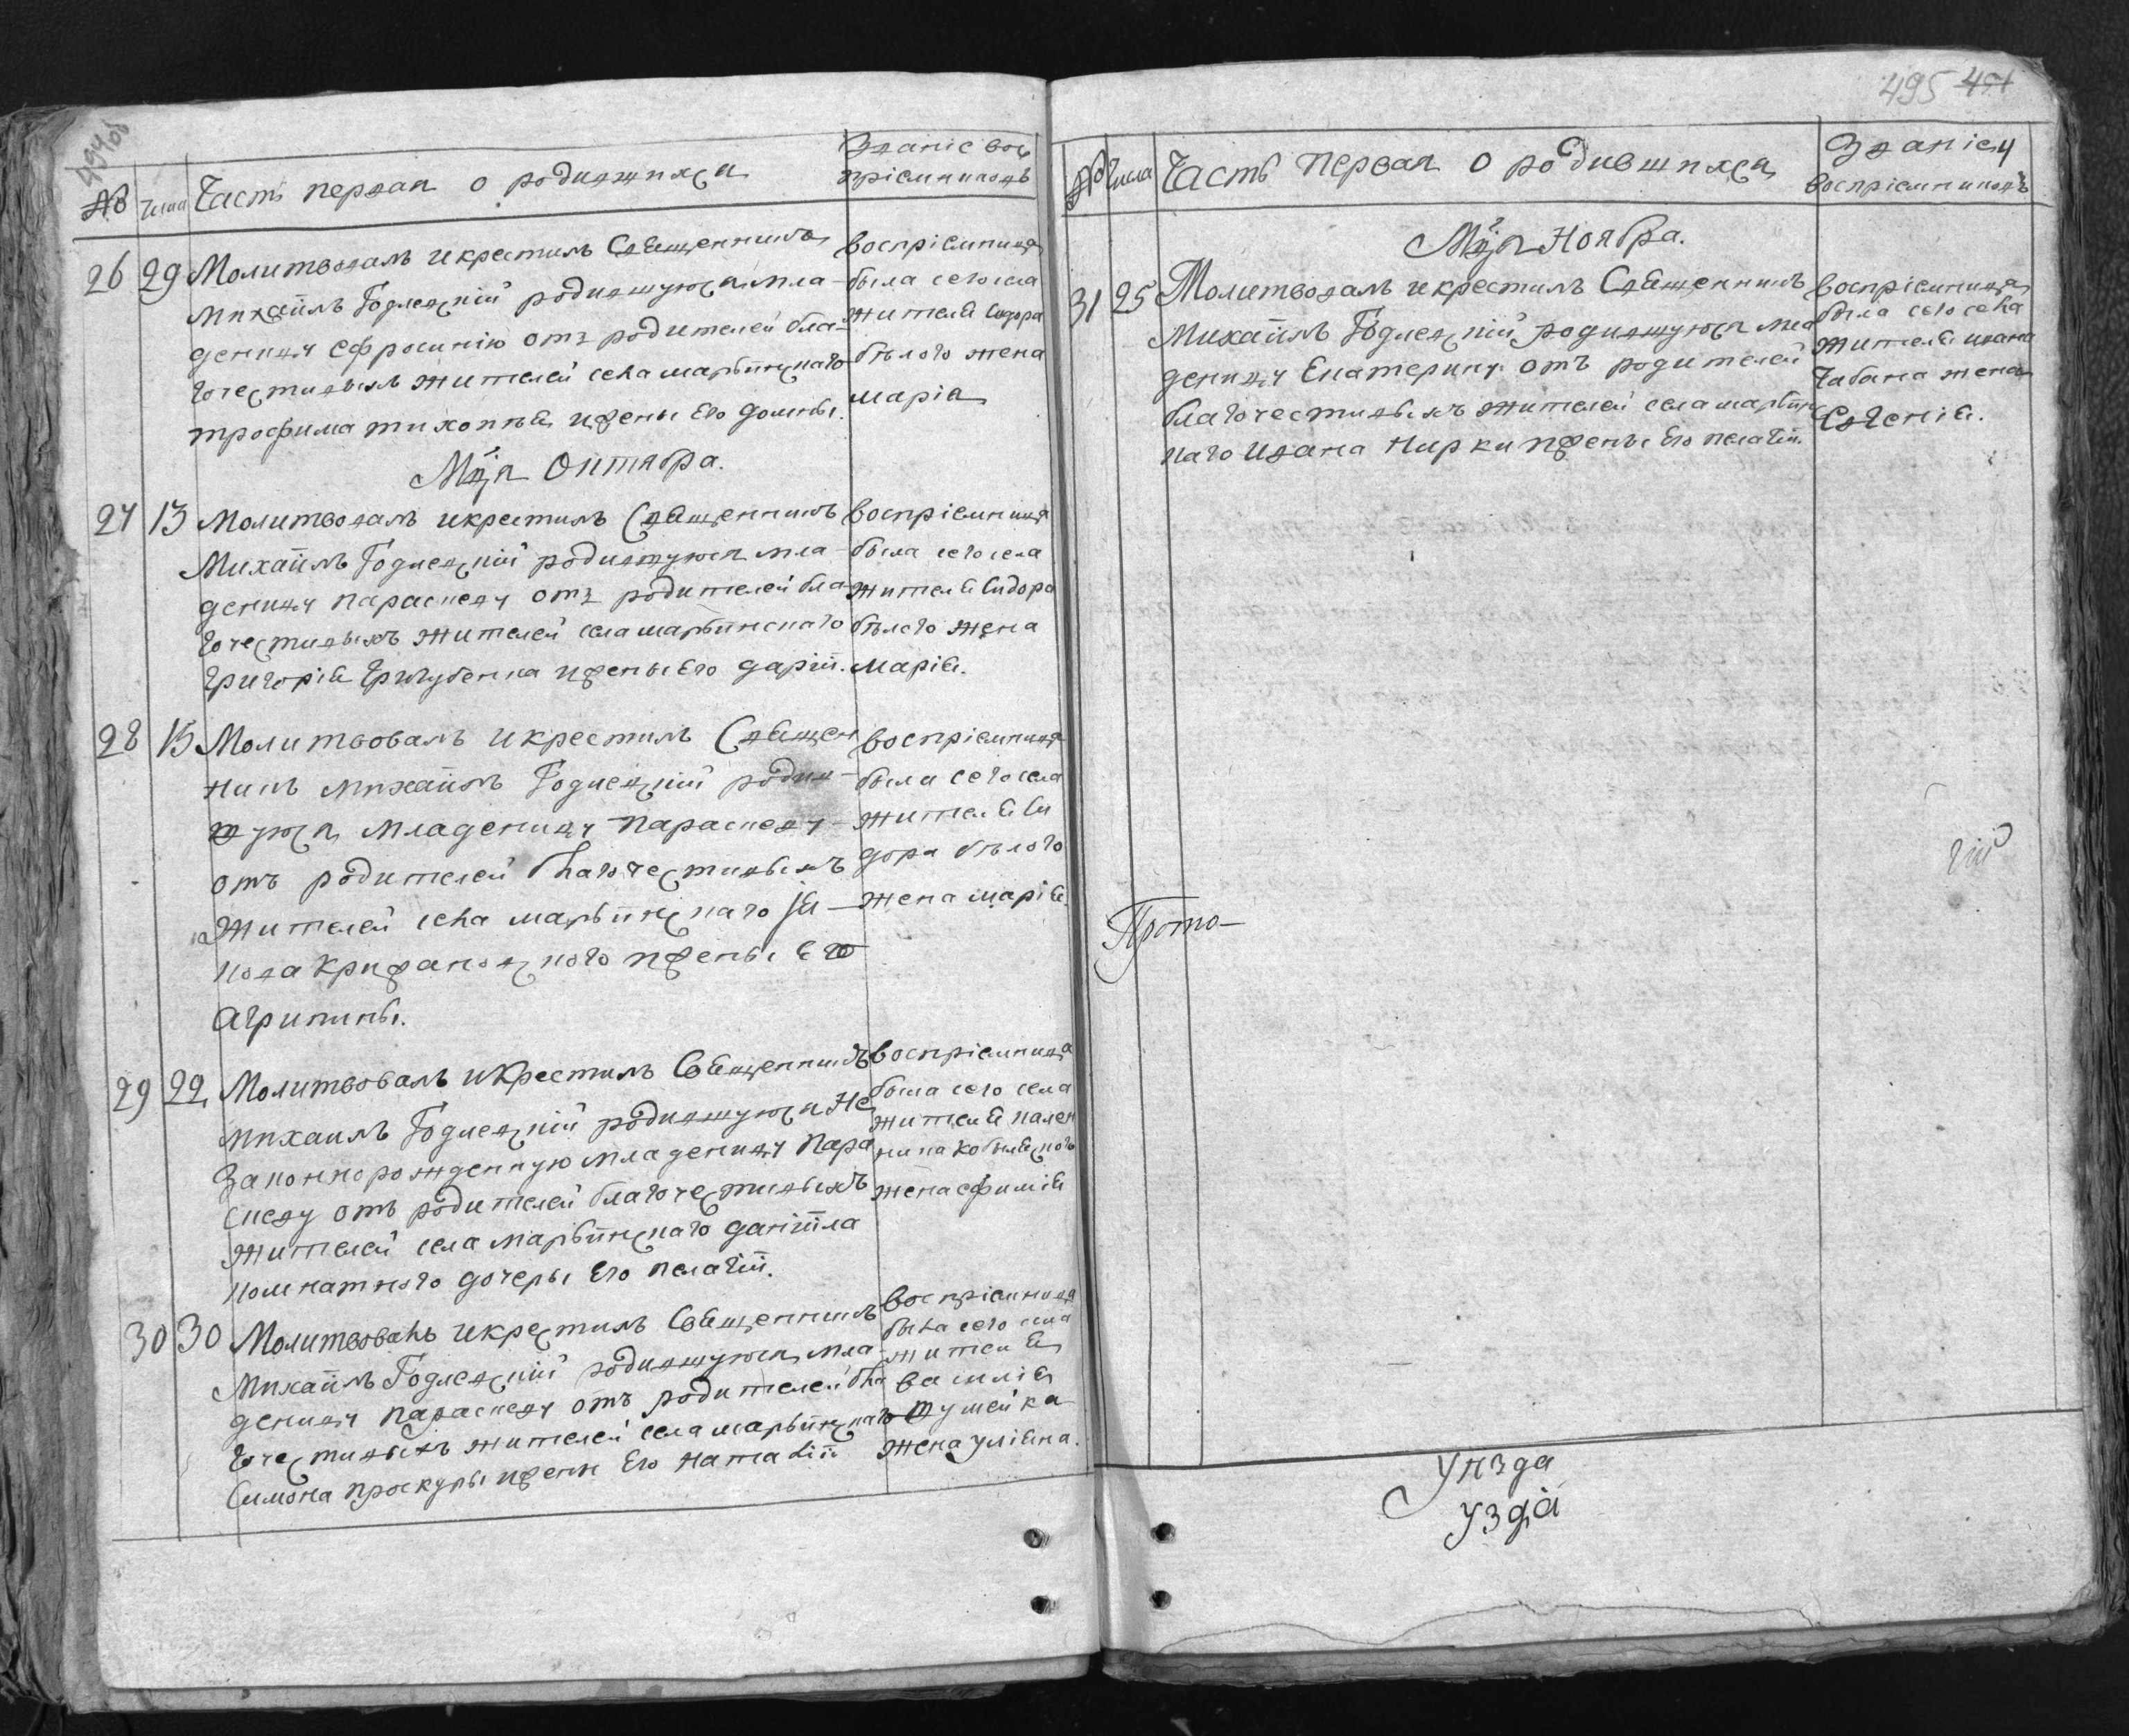 494об
№
Числа
Часть первая о родившихся
Званіе вос
пріемниковъ
26
29
Молитвовалъ и крестилъ Священникъ
Михаилъ Годлевскій родившуюся мла-
деницу Ефросинію отъ родителей бла-
гочестивыхъ жителей села марьинскаго
трофима тихония и жены его домны.
воспріемница
была сего села
жителя Сидора
бѣлого жена
марія
Мца Октября.
27
13
Молитвовалъ и крестилъ Священникъ
Михаилъ Годлевскій родившуюся мла-
деницу параскеву отъ родителей бла-
гочестивыхъ жителей села марьинскаго
григорія жены его даріи.
воспріемница
была сего села
жителя Сидора
бѣлого жена
марія.
28
15
Молитвовалъ и крестилъ Священ
никъ михаилъ Годлевскій родив-
шуюся младеницу параскеву-
отъ родителей благочестивыхъ
жителей села марьинскаго Я-
кова крижановского и жены его
агрипины.
воспріемница
была сего села
жителя Си
дора бѣлого
жена марія.
29
22
Молитвовалъ и крестилъ Священникъ
михаилъ Годлевскій родившуюся Не
законнорожденную младеницу пара
скеву отъ родителей благочестивыхъ
жителей села марьинскаго даніила
комнатного дочеры его пелагіи.
воспріемница
была сего села
жителя
жена ефимія
30
30
Молитвовалъ и крестилъ Священникъ
михаилъ Годлевскій родившуюся мла-
деницу параскеву отъ родителей бла
гочестивыхъ жителей села марьинскаго
Симона проскуры и жены его наталіи
воспріемница
была сего села
жителя
василія
жена уліяна.
495 491
№
Числа
Часть первая о родившихся
Званіе
воспріемниковъ
Мца Ноября.
31
25
Молитвовалъ и крестилъ Священникъ
Михаилъ Годлевскій родившуюся мла
деницу Екатерину отъ родителей
благочестивыхъ жителей села марьинс
каго Ивана Кирки и жены его пелагіи.
воспріемница
была сего села
жителя ивана
Чабана жена
Евгенія.
Прото-
уѣзда